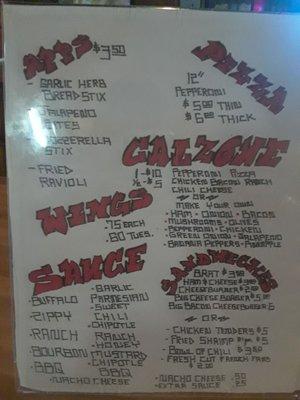 APPS $3.50
- GARLIC HERB
BREADSTIX
- JALAPENO
BITES
- MOZZERELLA
STIX
- FRIED
RAVIOLI
PIZZA
12"
PEPPERONI
$5.00 THIN
$6.00 THICK
CALZONE
1 - $10
1/2 - $5
PEPPERONI PIZZA
CHICKEN BACON RANCH
CHILI CHEESE
- OR -
MAKE YOUR OWN
- HAM - ONION - BACON
- MUSHROOMS - OLIVES
- PEPPERONI - CHICKEN
- GREEN ONION - JALAPENO
- BANANA PEPPERS - PINEAPPLE
WINGS
.75 EACH
.60 TUES.
SAUCE
- BUFFALO
- ZIPPY
- RANCH
- BOURBON
- BBQ
- GARLIC
PARMESIAN
- SWEET
CHILI
- CHIPOTLE
RANCH
- HONEY
MUSTARD
- CHIPOTLE
BBQ
- NACHO CHEESE
SANDWECHES
BRAT $3.00
HAM & CHEESE $3.00
CHEESEBURGER $2.50
BIG CHEESE BURGER $5.00
BIG BACON CHEESEBURGER 6
- OR -
- CHICKEN TENDERS $5
- FRIED SHRIMP $5
- BOWL OF CHILI $3.50
- FRESH CUT FRENCH FRIES
$2.00
- NACHO CHEESE .50
- EXTRA SAUCE .25